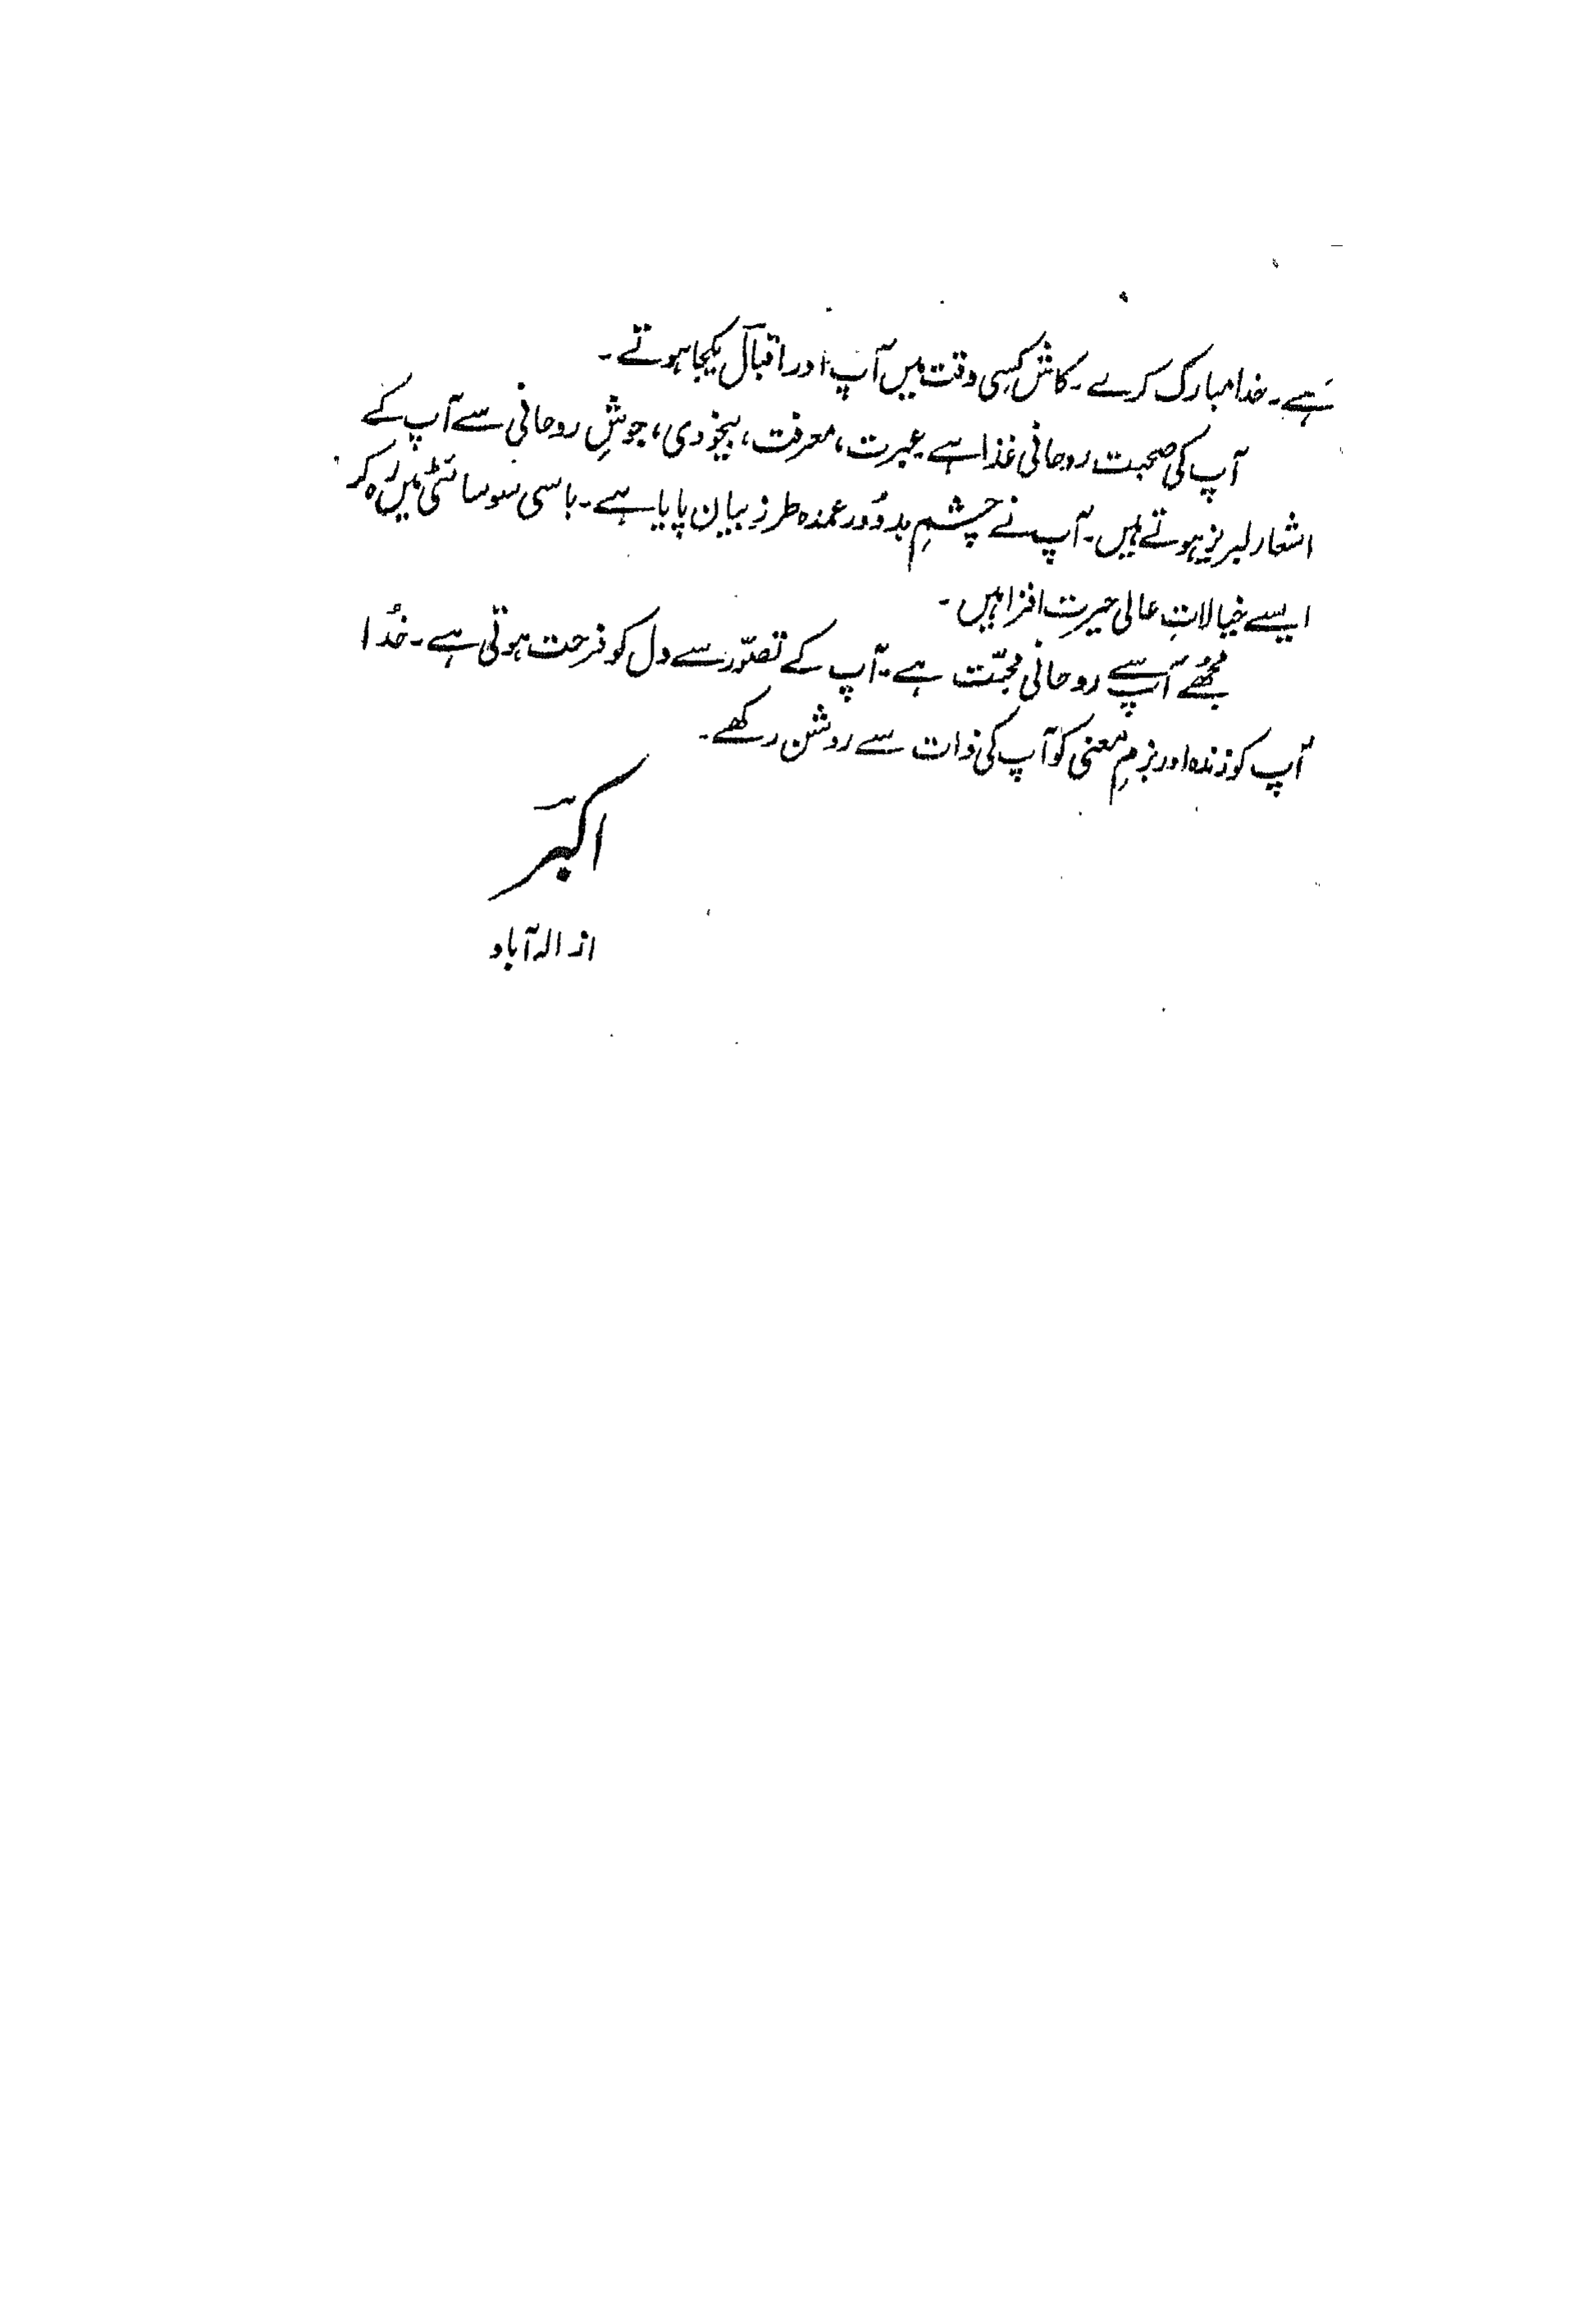 ہے۔ خدا مبارک کرے۔ کاش کسی وقت میں آپ اور اقبالؔ یکجا ہوتے۔
آپ کی صحبت روحانی غذا ہے عبرت، معرفت، بیخودی، جوشِ روحانی سے آپ کے
اشعار لبریز ہوتے ہیں۔ آپ نے چشمِ بد دُور عمدہ طرزِ بیان پایا ہے۔ باسی سوسائٹی میں رہ کر
ایسے خیالاتِ عالی حیرت افزا ہیں۔
مجھُے آپ سے روحانی محبّت ہے۔ آپ کے تصوّر سے دل کو فرحت ہوتی ہے۔ خُدا
آپ کو زندہ اور بزمِ معنی کو آپ کی ذات سے روشن رکھے۔
اکبرؔ
از الہ آباد